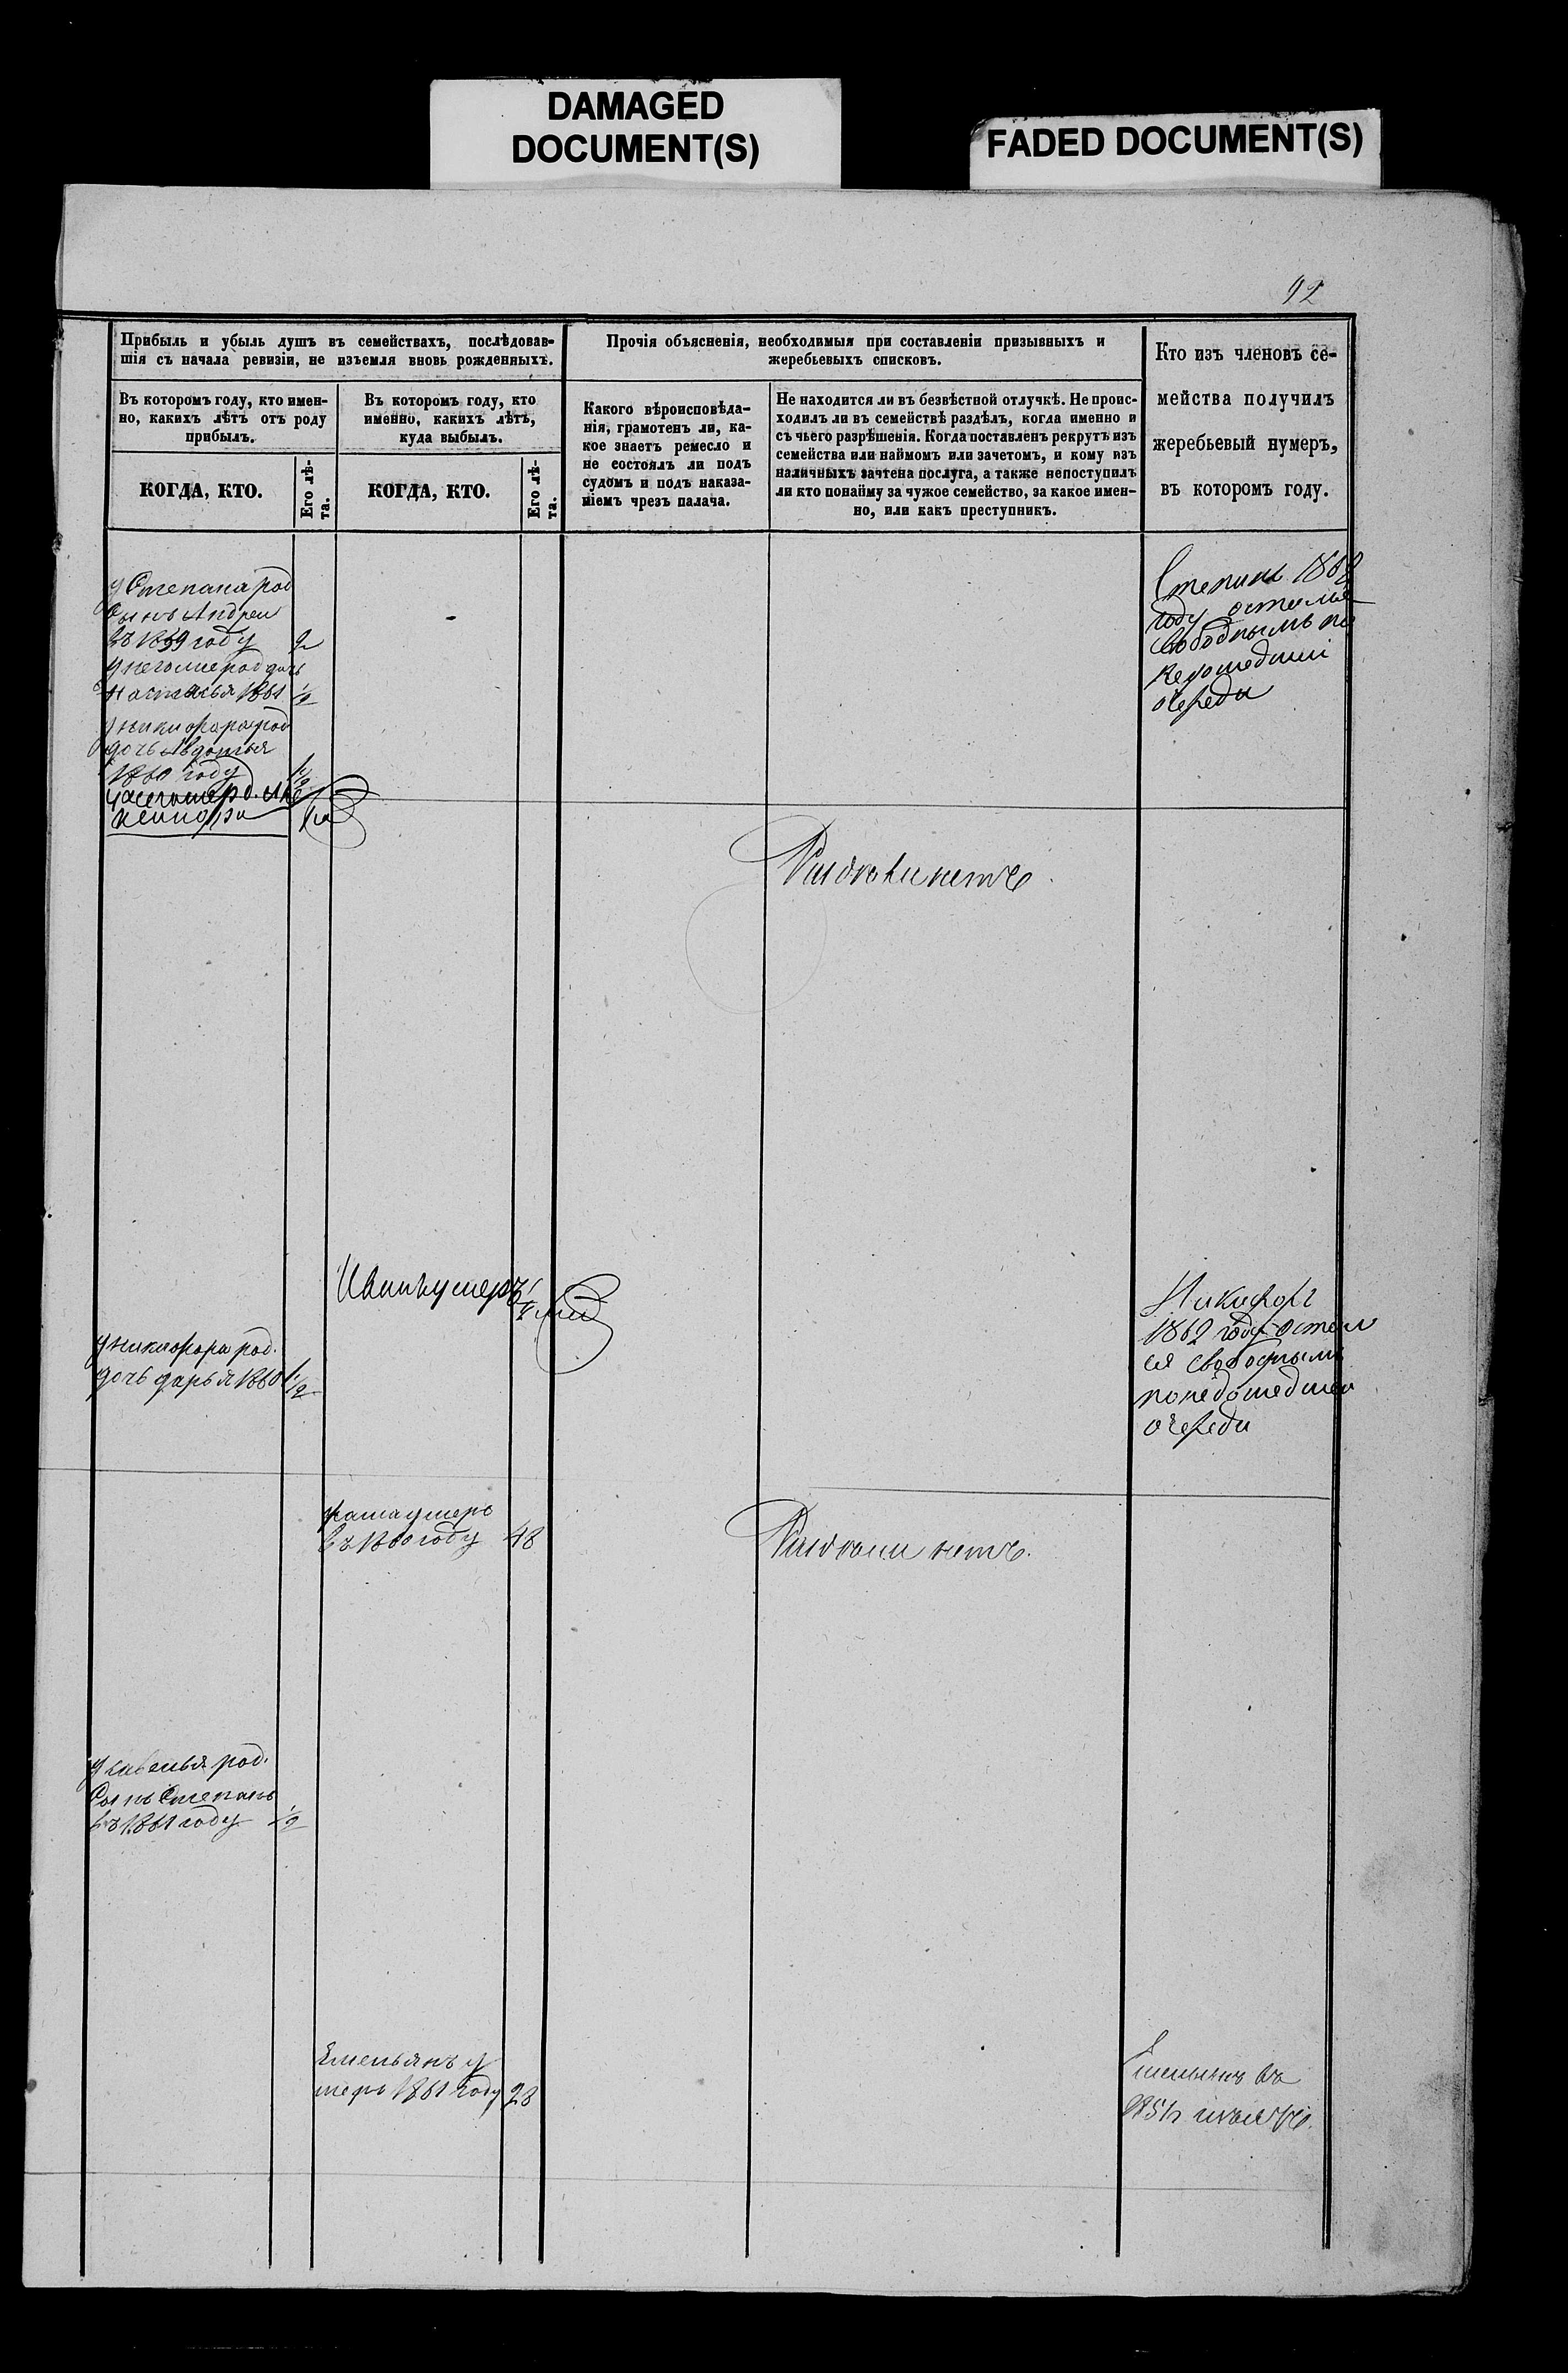 DAMAGED
DOCUMENT(S)
FADED DOCUMENT(S)
92
Прибыль и убыль душъ въ семействахъ, послѣдовав-
шія съ начала ревизіи, не изъемля вновь рожденныхъ.
Прочія объясненія, необходимыя при составленіи призывныхъ и
жеребьевыхъ списковъ.
Кто изъ членовъ се-
мейства получилъ
жеребьевый нумеръ,
въ которомъ году.
Въ которомъ году, кто имен-
но, какихъ лѣтъ отъ роду
прибылъ.
Въ которомъ году, кто
именно, какихъ лѣтъ,
куда выбылъ.
Какого вѣроисповѣда-
нія, грамотенъ ли, ка-
кое знаетъ ремесло и
не состоялъ ли подъ
судомъ и подъ наказа-
ніемъ чрезъ палача.
Не находится ли въ безвѣстной отлучкѣ. Не проис-
ходилъ ли въ семействѣ раздѣлъ, когда именно и
съ чьего разрѣшенія. Когда поставленъ рекрутъ изъ
семейства или наймомъ или зачетомъ, и кому изъ
наличныхъ зачтена послуга, а также непоступилъ
ли кто понайму за чужое семейство, за какое имен-
но, или какъ преступникъ.
КОГДА, КТО.
Его лѣ-
та.
КОГДА, КТО.
Его лѣ-
та.
у Степана род
сынъ Андреи
въ 1859 году 2
у негоже род дочь
Настасья 1861 1/2
у никифора род
дочь Авдотья
1860 году 1 1/2
Степанъ 1862
году остался
свободнымъ по
недошедшии
очереди
нетъ
Иванъ умеръ
у никифора род.
дочь дарья 1860 1 1/2
Никифоръ
1862 году остал
ся свободнымъ
понедошедшеи
очереди
умеръ
въ 1860 году 48
нетъ.
род.
Сынъ Степанъ
въ 1861 году 1/2
Емельянъ у
меръ 1861 году 28
Емельянъ въ